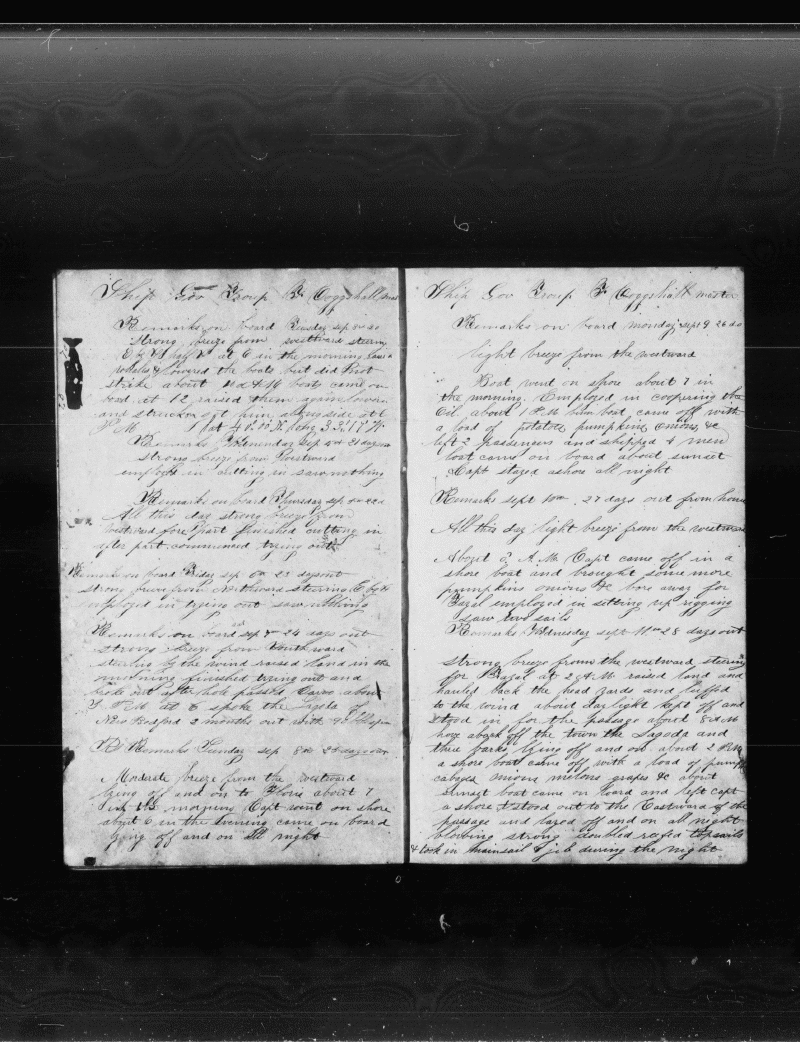 Ship Gov Troup F Coggshall master
Remarks on board Tuesday sep 3d 20
Strong breeze from westward steering
E by S half S at 6 in the morning saw
whales & lowered the boats but did Not
strike about 10 A M boat came on
board at 12 raised them again lowered
and struck got him alongside at 6
P M Lat 40.00 N Long 33.17 W
Remarks Wensday Sep 4th 21 days out
strong breeze from Westward
employed in cutting in saw nothing
Remarks on board Thursday sep 5th 22d
All this day strong breeze from
Westward fore part finished cutting in
after part commenced trying out
Remarks on board Friday sep 6th 23 days out
strong breeze from Northward steering E by N
employed in trying out saw nothing
Remarks on board sep 7 24 days out
strong breeze from Southward
steering by the wind raised land in the
morning finished trying out and
broke out after hole passed Corvo about
4 P M at 6 spoke the Lagoda of
New Bedford 2 months out with 90 bbls sperm
Remarks Sunday sep 8th 25 days out
Moderate breeze from the westward
lying off and on to Flores about 7
in the morning Capt went on shore
about 6 in the evening came on board
lying off and on all night
Ship Gov Troup F Coggshall master
Remarks on board monday sept 9 26 do
light breeze from the westward
Boat went on shore about 7 in
the morning Employed in coopering the
Oil about 1 P.M. bum boat came off with
a load of potatoes pumpkins onions &c
left 2 passengers and shipped 4 men
boat came on board about sunset
Capt stayed ashore all night
Remarks sept 10th 27 days out from home
All this day light breeze from the westward
About 8 A.M. Capt came off in a
shore boat and brought some more
pumpkins onions &c bore away for
Fayal employed in setting up rigging
saw two sails
Remarks Wednesday sept 11th 28 days out
strong breeze from the westward steering
for Fayal at 2 A.M. raised land and
hauled back the head yards and luffed
to the wind about daylight kept off and
stood in for the passage about 8 A M
hove aback off the town the Lagoda and
three barks lying off and on about 2 P.M.
a shore boat came off with a load of pumpk
cabages onions melons grapes &c about
sunset boat came on board and left capt
a shore & stood out to the Eastward of the
passage and layed off and on all night
blowing strong doubled reefed topsails
& took in mainsail & jib during the night